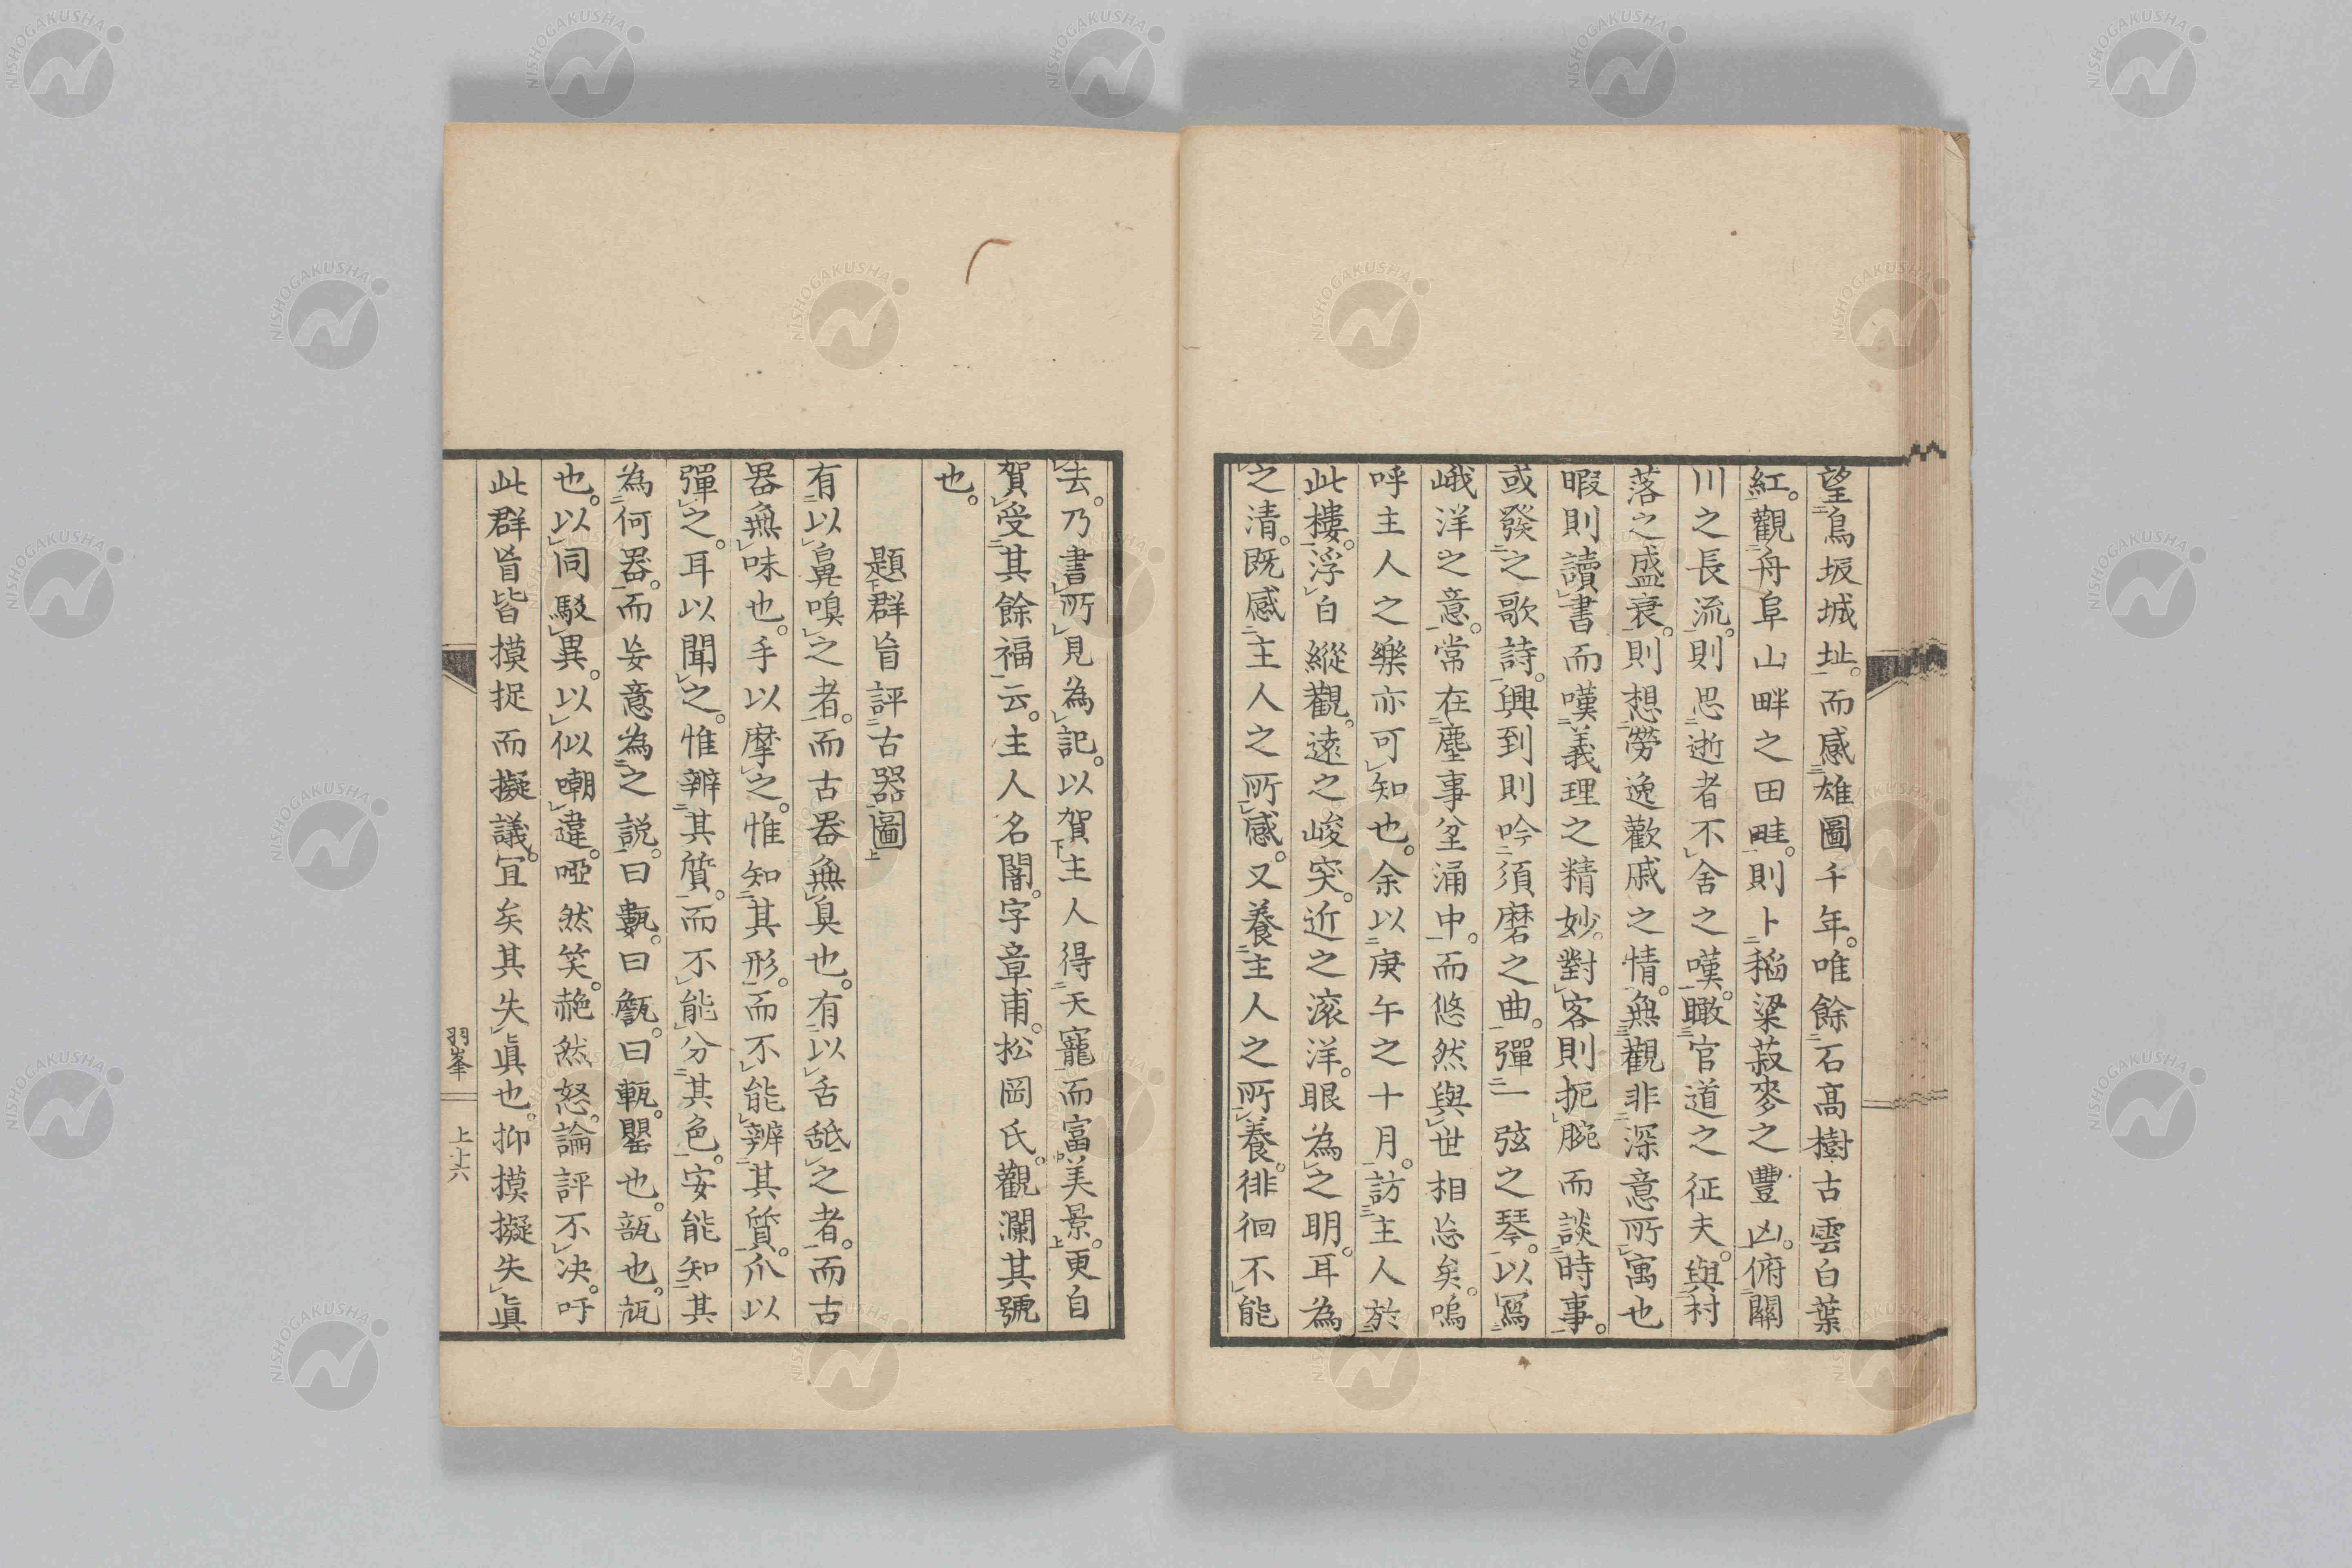 望鳥坂城址。而感雄圖千年。唯餘石高樹古雲白葉
紅。觀舟阜山畔之田畦。則卜稻梁菽麥之豐凶。俯關
川之長流。則思逝者不舍之嘆。瞰官道之征夫。與村
落之盛衰。則想勞逸歡戚之情。無觀非深意所寓也
暇則讀書而嘆義理之精妙。對客則扼腕而談時事。
或發之歌詩。興到則吟須磨之曲。彈一弦之琴。以寫
峨洋之意。常在塵事坌涌中。而悠然與世相忘矣。嗚
呼主人之樂亦可知也。余以庚午之十月。訪主人於
此樓。浮白縱觀。遠之峻突。近之滚洋。眼為之明。耳為
之清。既感主人之所感。又養主人之所養。徘徊不能
去。乃書所見為記。以賀主人得天寵而富美景。更自
賀受其餘福云。主人名闇。字章甫。松岡氏。觀瀾其號
也。
題群盲評古器圖
有以鼻嗅之者。而古器無臭也。有以舌舐之者。而古
器無味也。手以摩之。惟知其形。而不能辨其質。爪以
彈之。耳以聞之。惟辨其質。而不能分其色。安能知其
為何器。而妄意為之説。曰甎。曰甔。曰甄。甖也。瓿也。瓶
也。以同駁異。以似嘲違。啞然笑。赩然怒。論評不決。吁
此群盲皆摸捉而擬議。宜矣其失眞也。抑摸擬失眞
羽峯
上十六
NISHOGAKUSHA